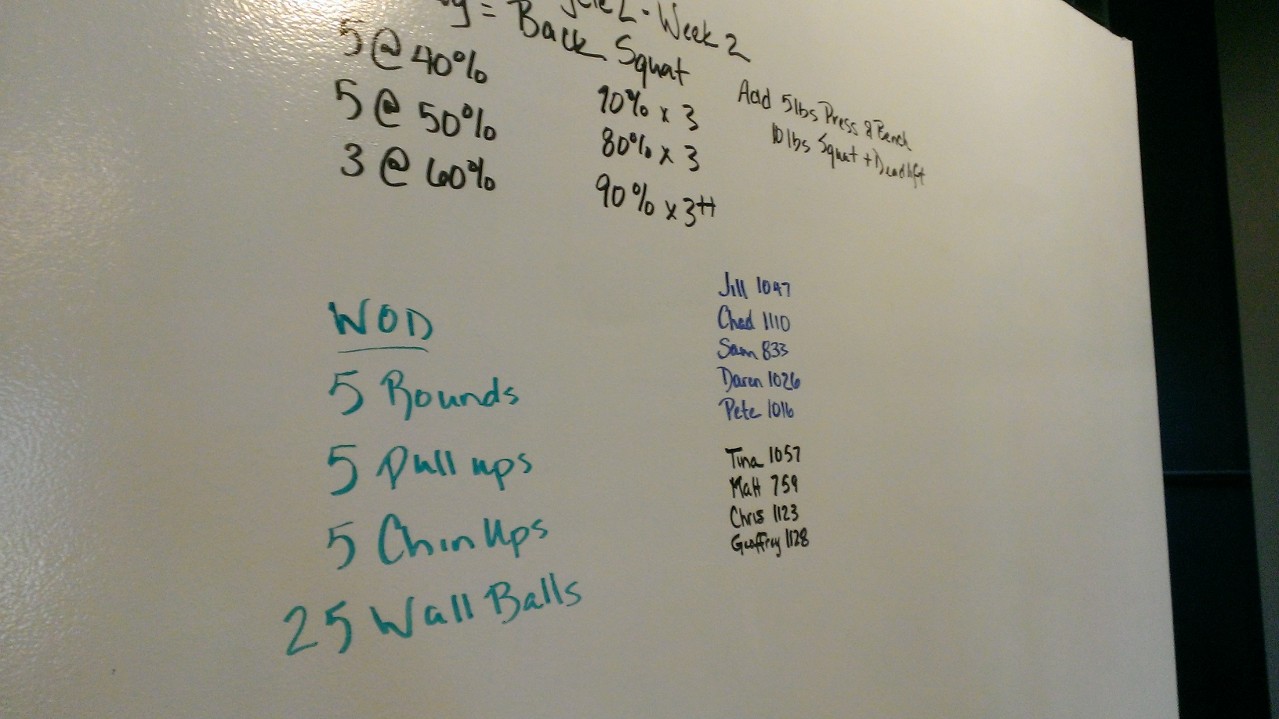 Week 2
Back Squat
5 @ 40%
5 @ 50%
3 @ 60%
70% x 3
80% x 3
90% x 3++
Add 5lbs Press & Bench
10 lbs Squat + Deadlift
WOD
5 Rounds
5 Pull ups
5 Chin Ups
25 Wall Balls
Jill 1047
Chad 1110
Sam 833
Daren 1026
Pete 1016
Tina 1057
Matt 759
Chris 1123
Geoffrey 1128